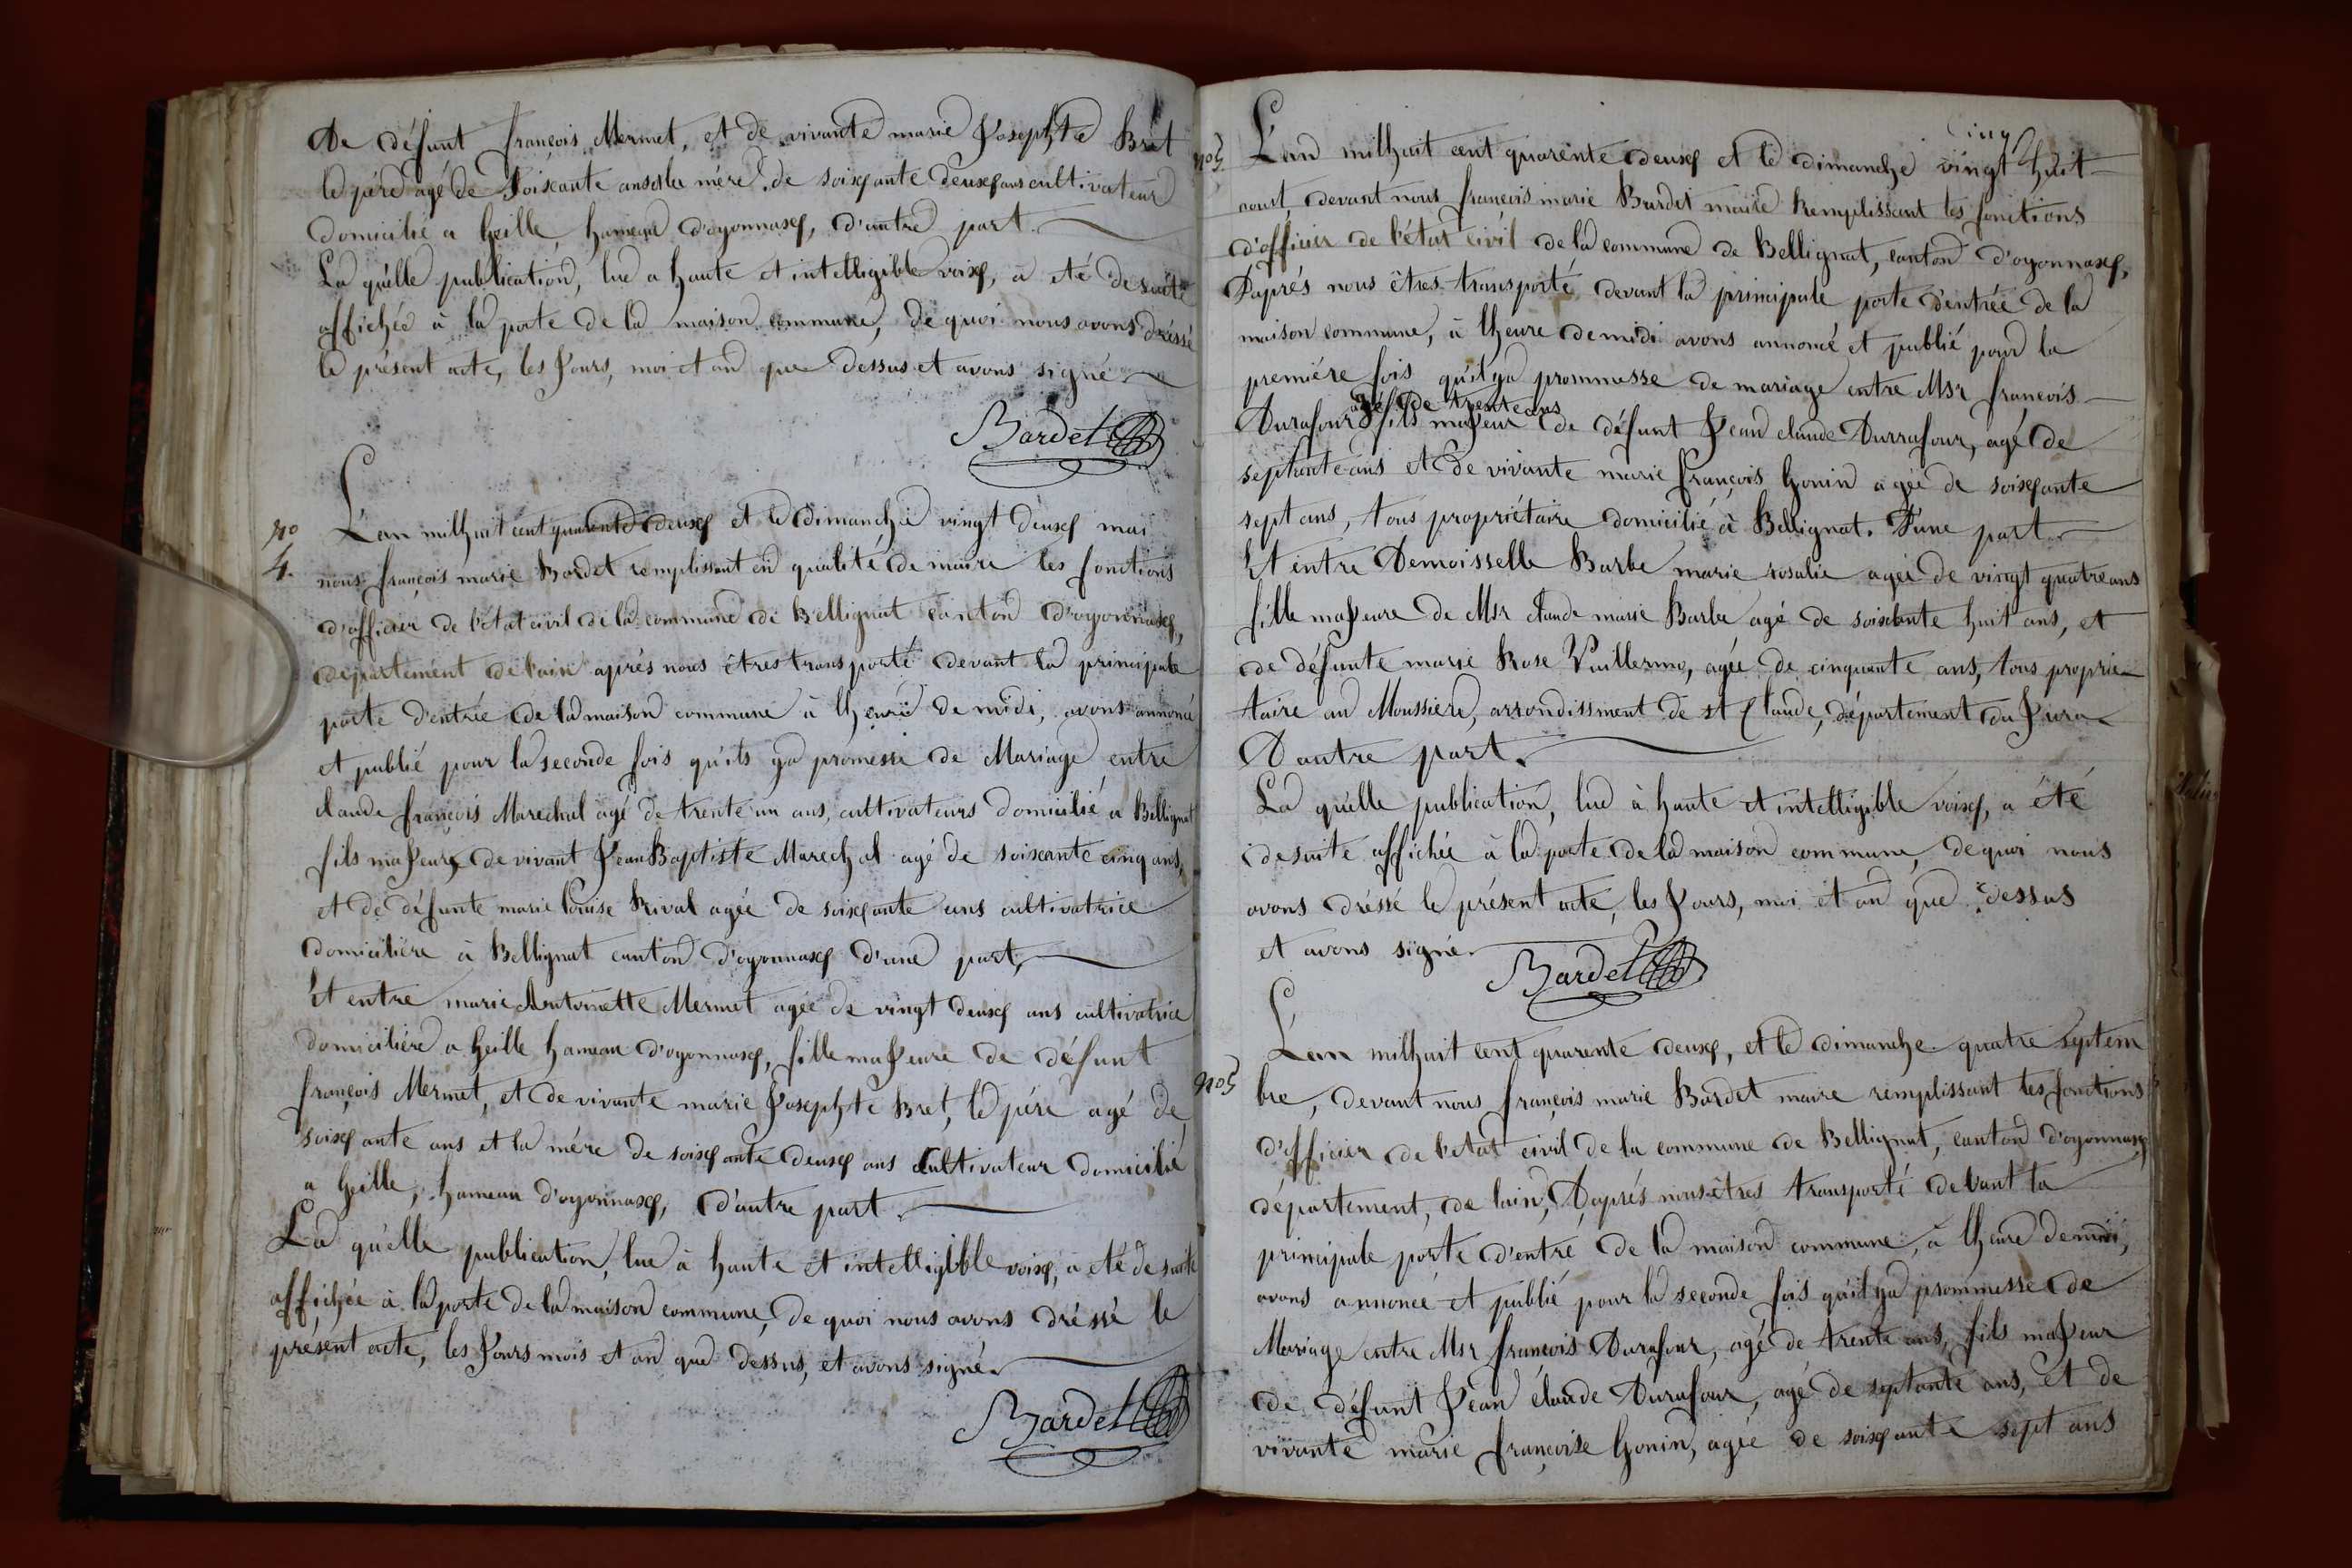 De défunt françois Mermet, et de vivante marie Josephte Bret
le père agé de soiscante ans et la mére de soisçante deuseç ans cultivateur
Domicilié a Geille, hameau d'oyonnaseç, d'autre part
La qu'elle publication, lue a haute et intelligible voiseç, a été desuite
affichée à la porte de la maison commune, de quoi nous avons dréssé
le présent acte, les Jours, moi et an que dessus et avons signé
Bardet
no
4.
L'an milhuit cent quarente deuseç et le dimanche vingt deuseç mai
nous françois marie Bardet remplissant en qualité de maire les fonctions
d'officier de l'état civil de la commune de Bellignat canton d'oyonnaseç,
département de l'ain aprés nous êtres transporté devant la principale
porte d'entrée de la maison commune à lheure de midi, avons annoncé
et publié pour la seconde fois qu'ils ya promesse de Mariage entre
claude françois Marechal agé de trente un ans, cultivateurs domicilié a Bellignat
fils majeurs de vivant Jean Baptiste Marechal agé de soiscante cinq ans,
et de défunte marie louise Rival agée de soisçante ans cultivatrice
domicilière à Bellignat canton d'oyonnaseç d'une part,
Et entre marie Antoinette Mermet agée de vingt deuseç ans cultivatrice
domicilière a Geille hameau d'oyonnaseç, fille majeure de défunt
françois Mermet, et de vivante marie Josephte Bret, le pére agé de
soisçante ans et la mére de soisçante deuseç ans cultivateur domicilié
a Geille, hameau d'oyonnaseç, d'autre part
La qu'elle publication, lue à haute et intelligible voiseç, a été de suite
affichée à la porte de la maison commune, de quoi nous avons dréssé le
présent acte, les Jours mois et an que dessus, et avons signé.
Bardet
no5
cinq
L'an milhuit cent quarente deuseç et le dimanche vingt huit
aout, devant nous françois marie Bardet maire Remplissant les fonctions
d'officier de l'état civil de la commune de Bellignat, canton d'oyonnaseç,
D'aprés nous êtres transporté devant la principale porte d'entrée de la
maison commune, à lheure de midi avons annoncé et publié pour la
premiére fois qu'il ya prommesse de mariage entre Msr françois
agé de trente ans
Durafour fils majeur de défunt Jean claude Durrafour, agé de
septante ans et de vivante marie françois Gonin agée de soisçante
sept ans, tous propriétaire domicilié à Bellignat. D'une part
Et entre Demoisselle Barbe marie rosalie agée de vingt quatre ans
fille majeure de Msr claude marie Barbe agé de soiscante huit ans, et
de défunte marie Rose Vuillermo, agée de cinquante ans, tous proprie
taire au Moussiere, arrondissment de st Claude, département du Jura
D'autre part.
La qu'elle publication, lue à haute et intelligible voiseç, a été
desuite affichée à la porte de la maison commune, dequoi nous
avons dréssé le présent acte, les Jours, moi et an que dessus
et avons signé.
Bardet
no5
L'an milhuit cent quarente deuseç, et le dimanche quatre septem
bre, devant nous françois marie Bardet maire remplissant les fonctions
d'officier de l'etat civil de la commune de Bellignat, canton d'oyonnaseç
département, de lain, D'aprés nous êtres transporté devant la
principale porte d'entré de la maison commune, à lheure de midi,
avons annoncé et publié pour la seconde fois qu'il ya prommesse de
Mariage entre Msr françois Durafour, agé de trente ans, fils majeur
de défunt Jean claude Durafour, agé de septante ans, et de
vivante marie françoise Gonin, agée de soisçante sept ans